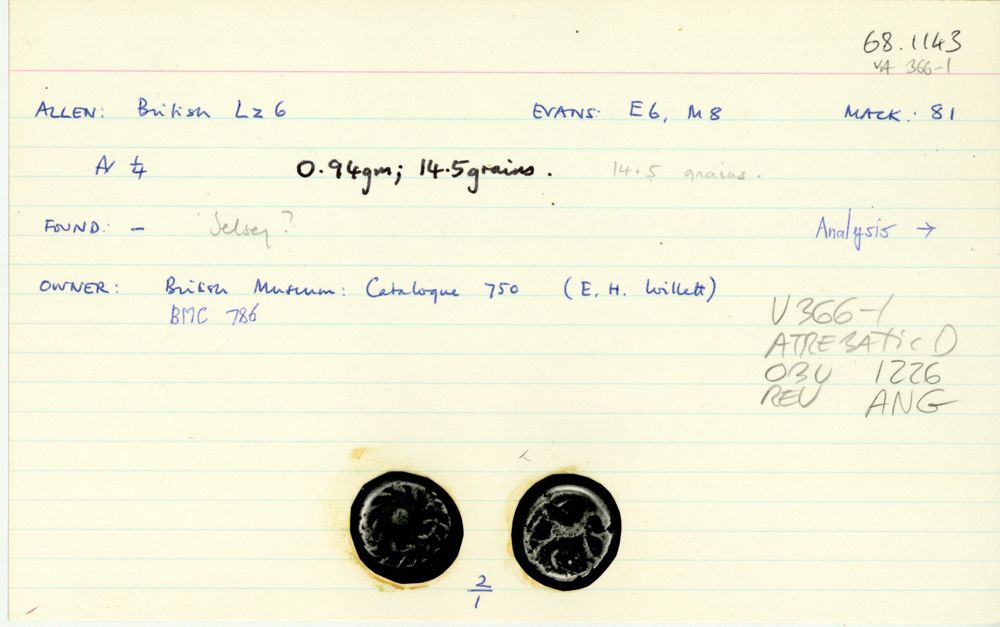 68.1143
VA 366-1
ALLEN: British Lz 6 EVANS: E6, M8 MACK: 81
AV ¼ 0.94gm; 14.5 grains. 14.5 grains.
FOUND: — Selsey?
Analysis →
OWNER: British Museum: Catalogue 750 (E. H. Willett)
BMC 786
V366-1
ATREBATIC D
OBV 1226
REV ANG
2/1